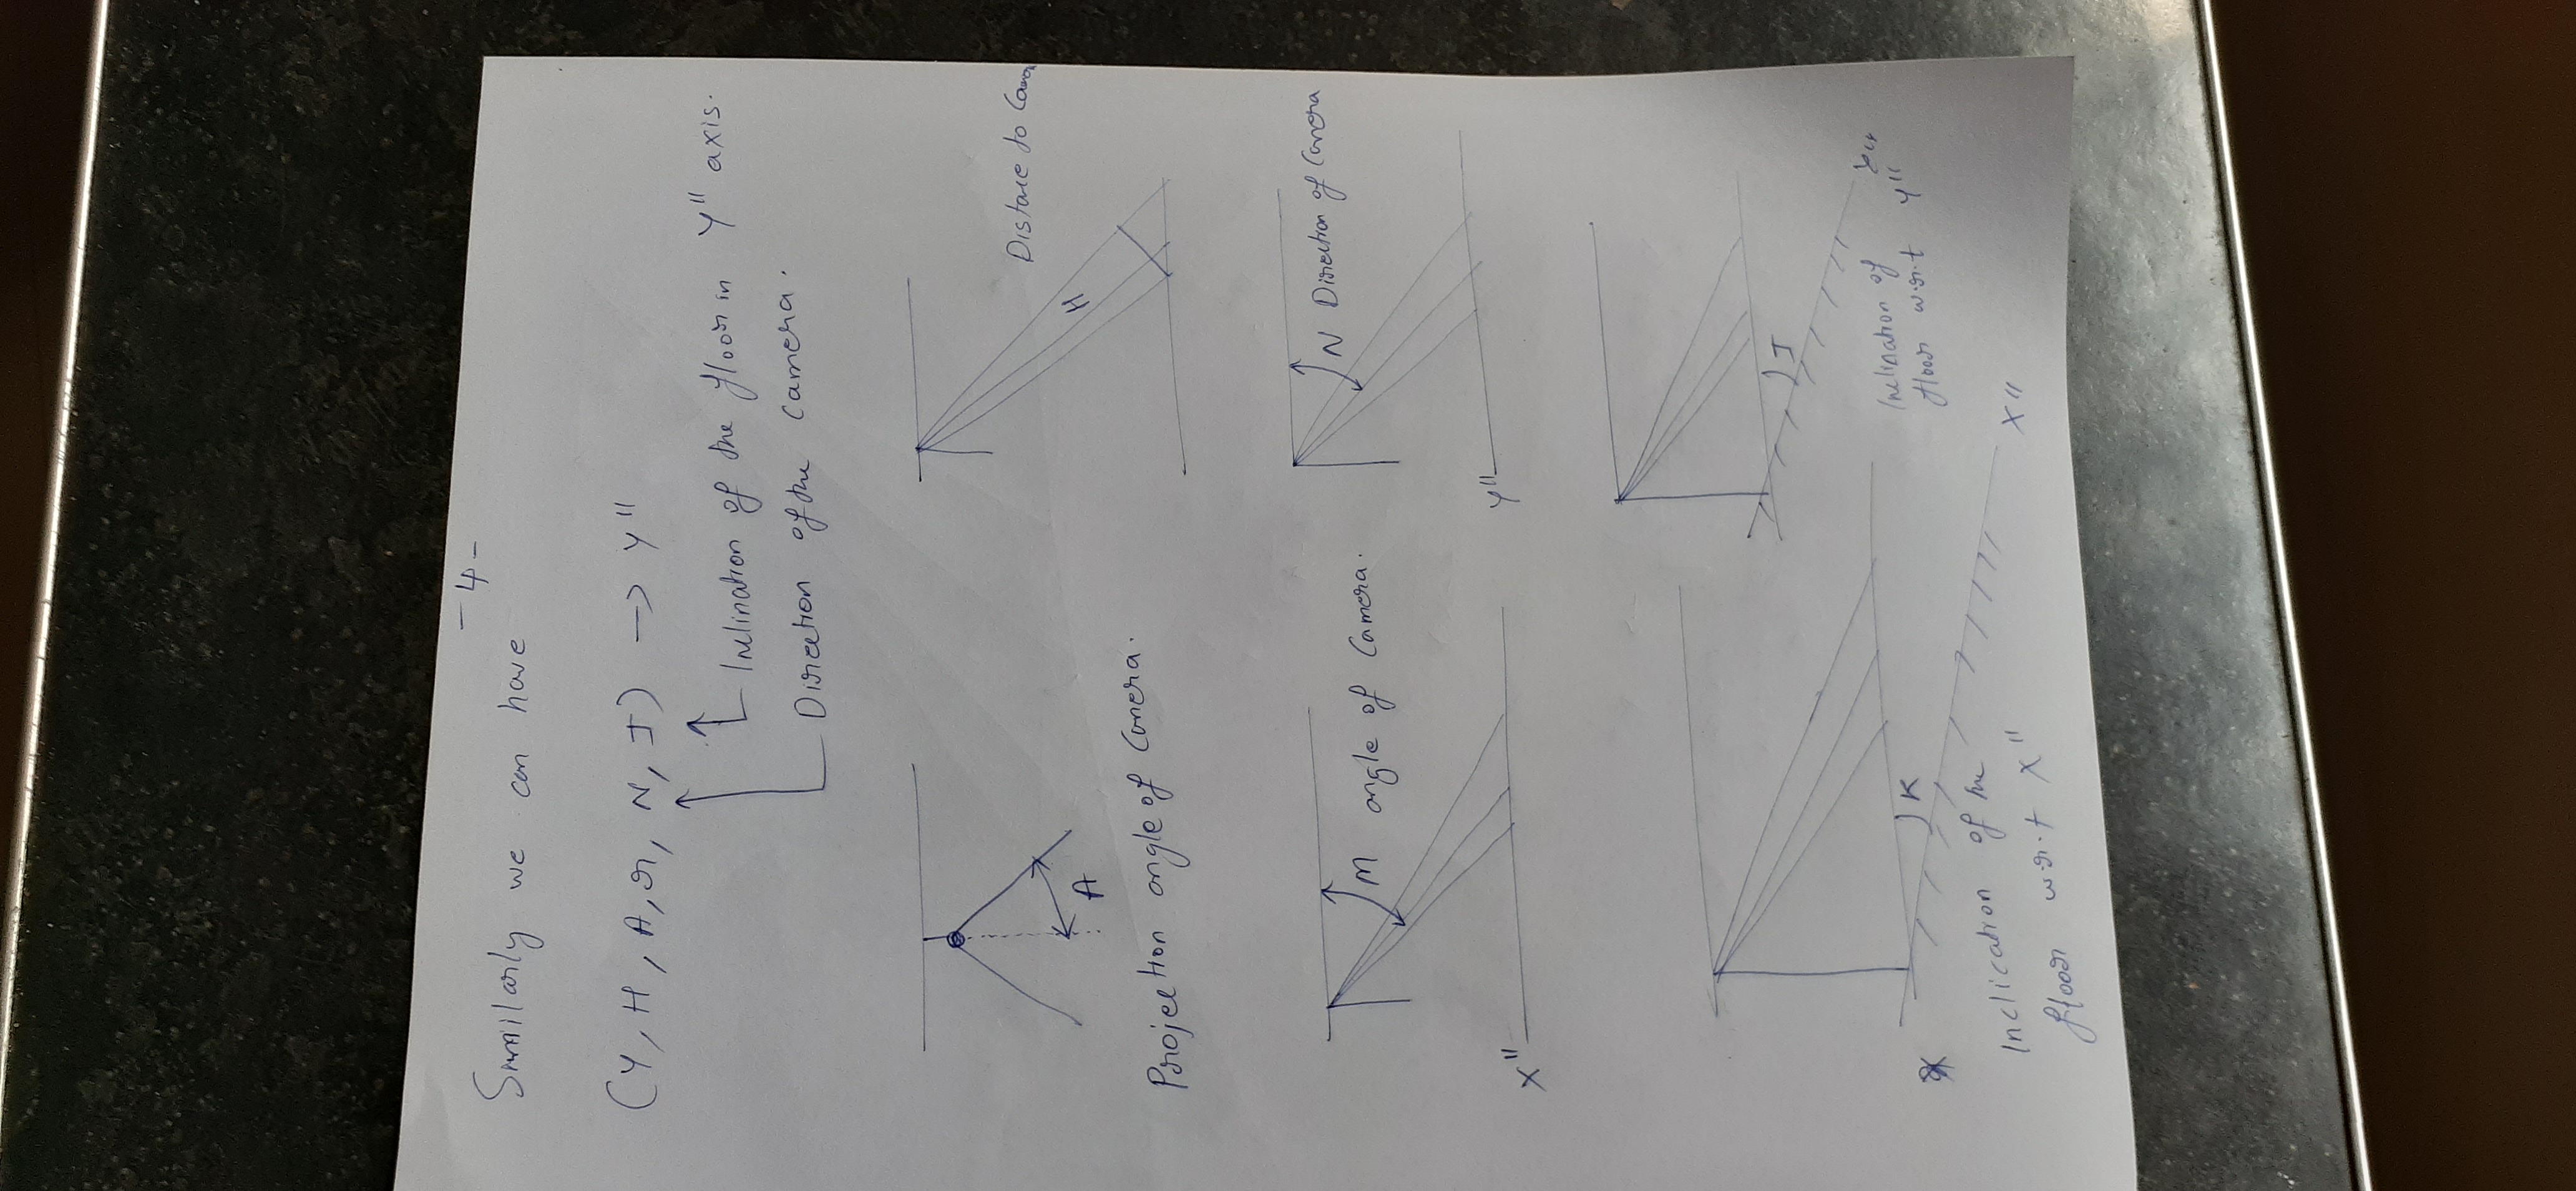 -4-
Similarly we can have
(Y, H, A, r, N, J) → Y"
Inclination of the floor in Y" axis.
Direction of the camera.
A
H
Distance to Cam
Projection angle of Camera.
M angle of Camera.
N Direction of Camera
X"
Y"
K
J
X"
Inclication of the
floor w.r.t X"
Inclination of
floor w.r.t Y"